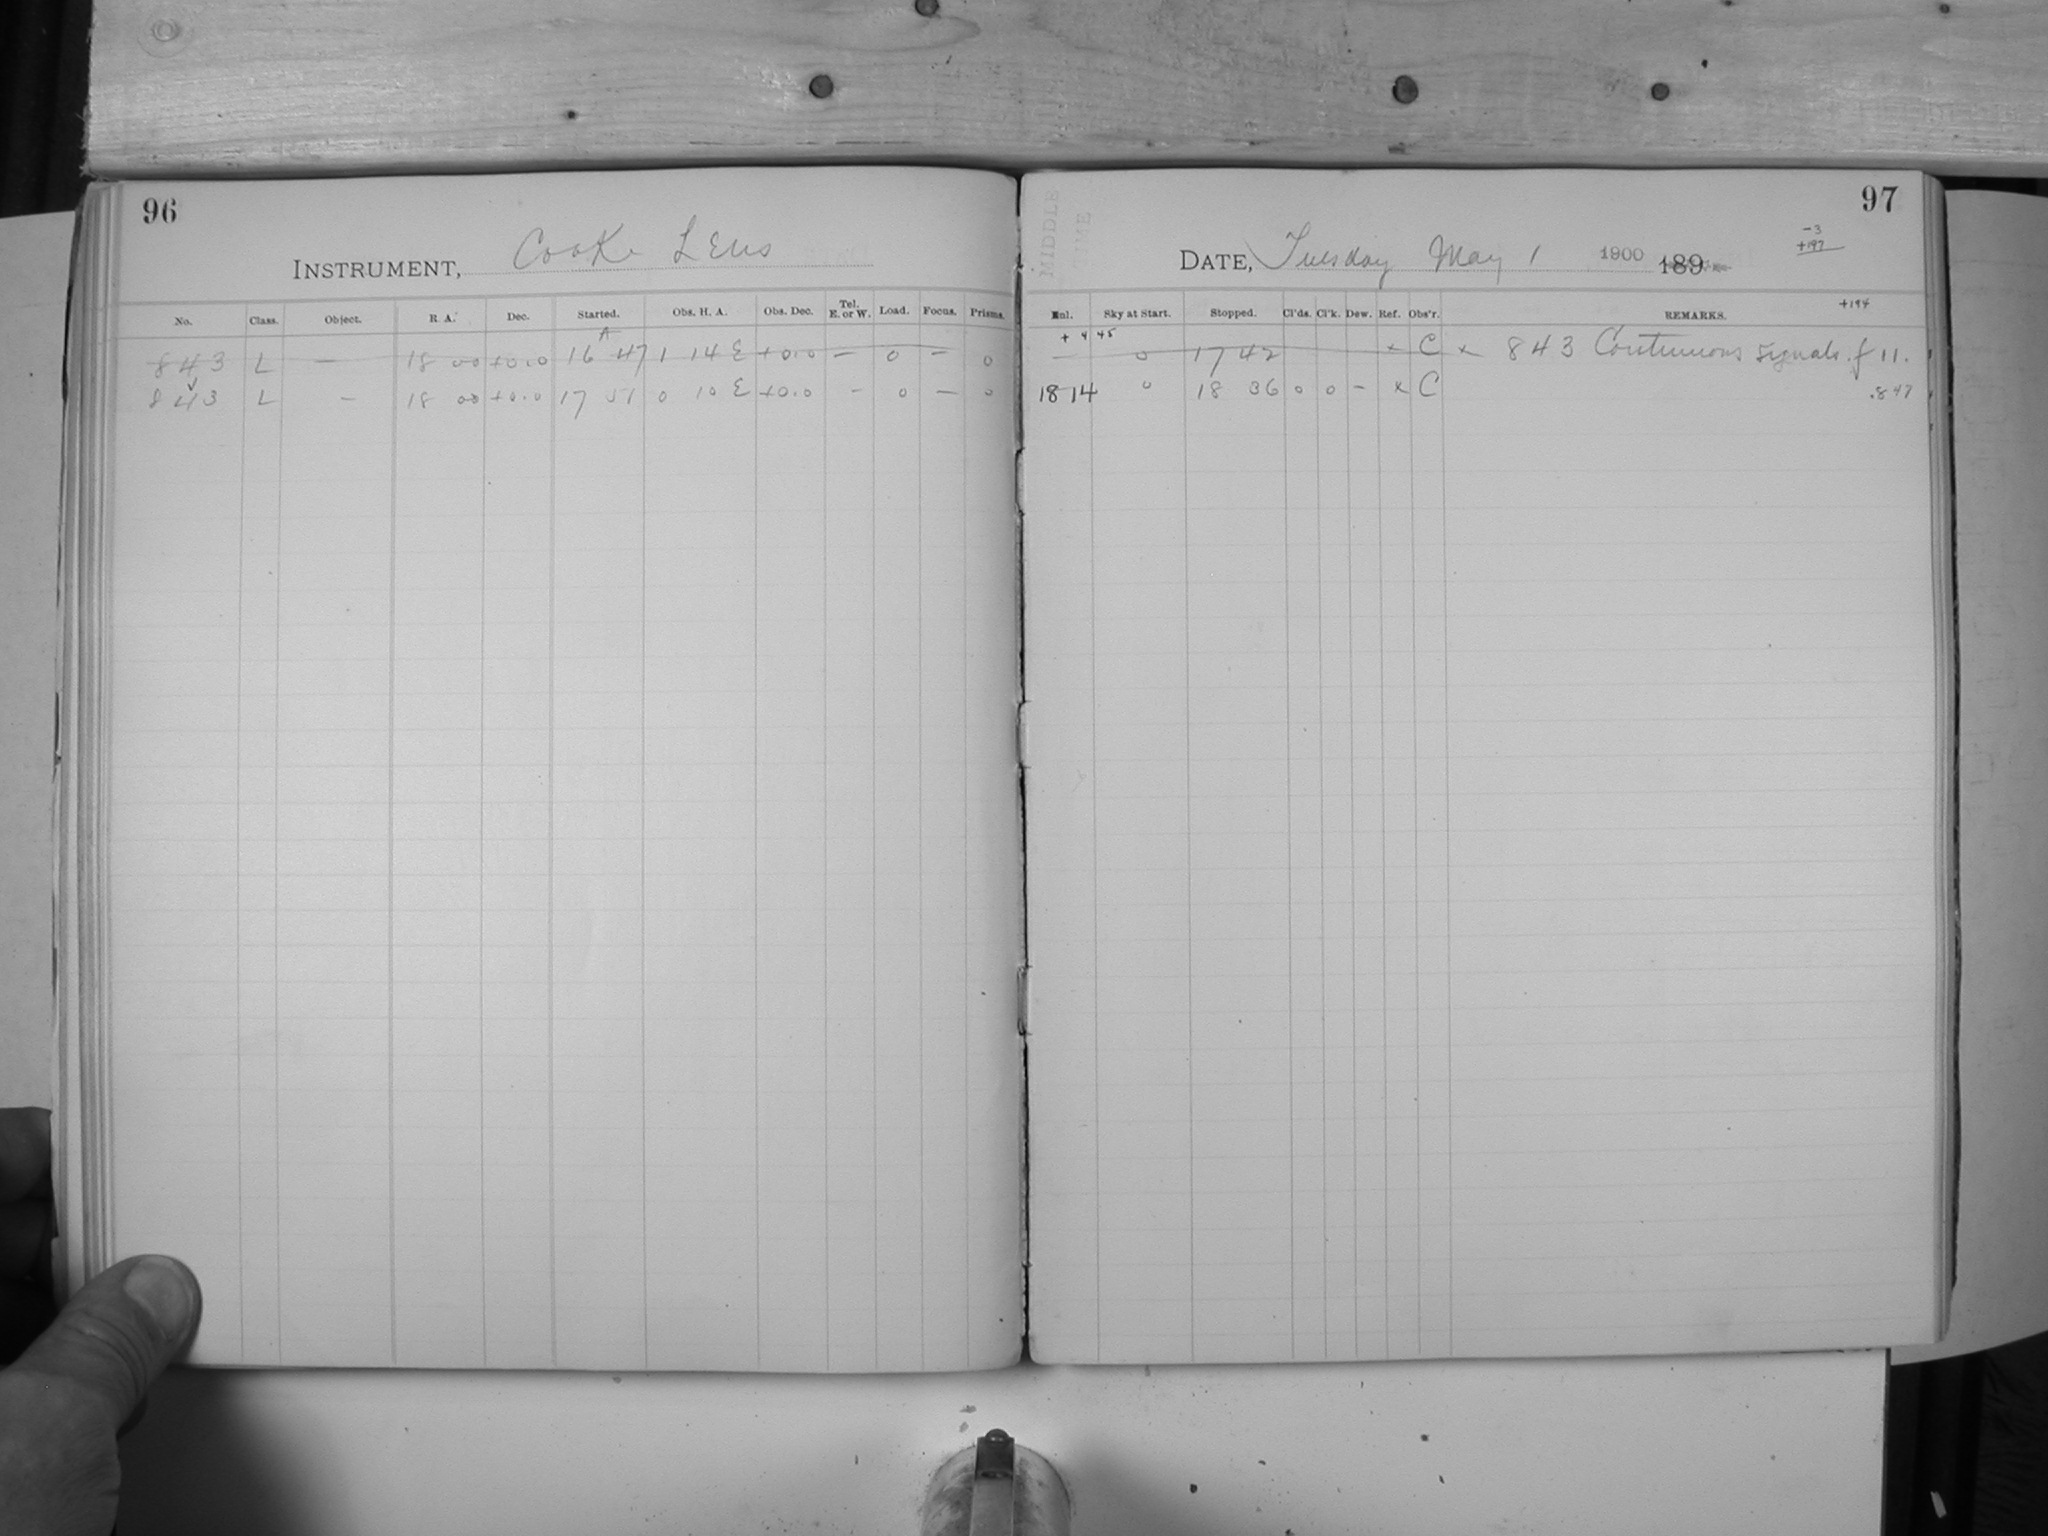 96
INSTRUMENT, Cooke Lens
No. Class. Object. R. A. Dec. Started. Obs. H. A. Obs. Dec. Tel. E. or W. Load. Focus. Prisms.
A
843 L — 18 00 +0.0 16 47 1 14 E +0.0 — 0 — 0
843 L — 18 00 +0.0 17 51 0 10 E +0.0 — 0 — 0
97
MIDDLE
TIME
-3
+197
DATE, Tuesday May 1 1900 189
+194
Enl. Sky at Start. Stopped. Cl'ds. Cl'k. Dew. Ref. Obs'r. REMARKS.
+ 4 45
— 0 17 42 x C x 843 Continuous signals. f 11.
18 14 0 18 36 0 0 — x C .847